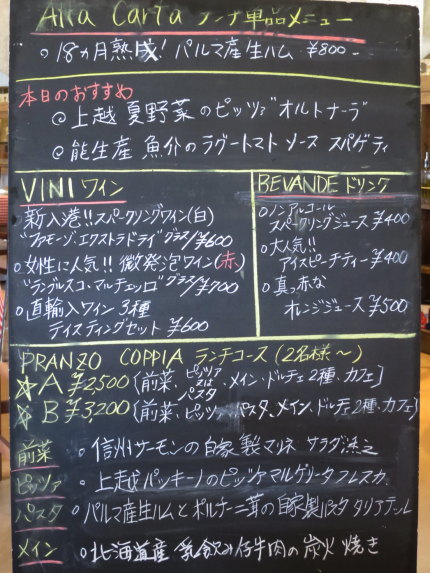 Alla Carta ランチ単品メニュー
○18ヵ月熟成! パルマ産生ハム ¥800-
本日のおすすめ
@上越 夏野菜のピッツァ オルトナーラ
@能生産 魚介のラグートマトソース スパゲティ
VINI ワイン
新入港!!スパークリングワイン(白)
"ファモーゾ・エクストラドライ" グラス/¥600
○女性に人気!! 微発泡ワイン(赤)
"ランブルスコ・マルチェッロ" グラス/¥700
○直輸入ワイン 3種
テイスティングセット ¥600
BEVANDE ドリンク
○ノンアルコール
スパークリングジュース ¥400
○大人気!!
アイスピーチティー ¥400
○真っ赤な
オレンジジュース ¥500
PRANZO COPPIA ランチコース(2名様〜)
☆A ¥2,500 [前菜、ピッツァ又はパスタ、メイン、ドルチェ2種、カフェ]
☆B ¥3,200 [前菜、ピッツァ、パスタ、メイン、ドルチェ2種、カフェ]
前菜 ○信州サーモンの自家製マリネ サラダ添え
ピッツァ ○上越パッキーノのピッツァマルゲリータフレスカ
パスタ ○パルマ産生ハムとポルチーニ茸の自家製パスタ タリアテッレ
メイン ○北海道産 乳飲み仔牛肉の炭火焼き